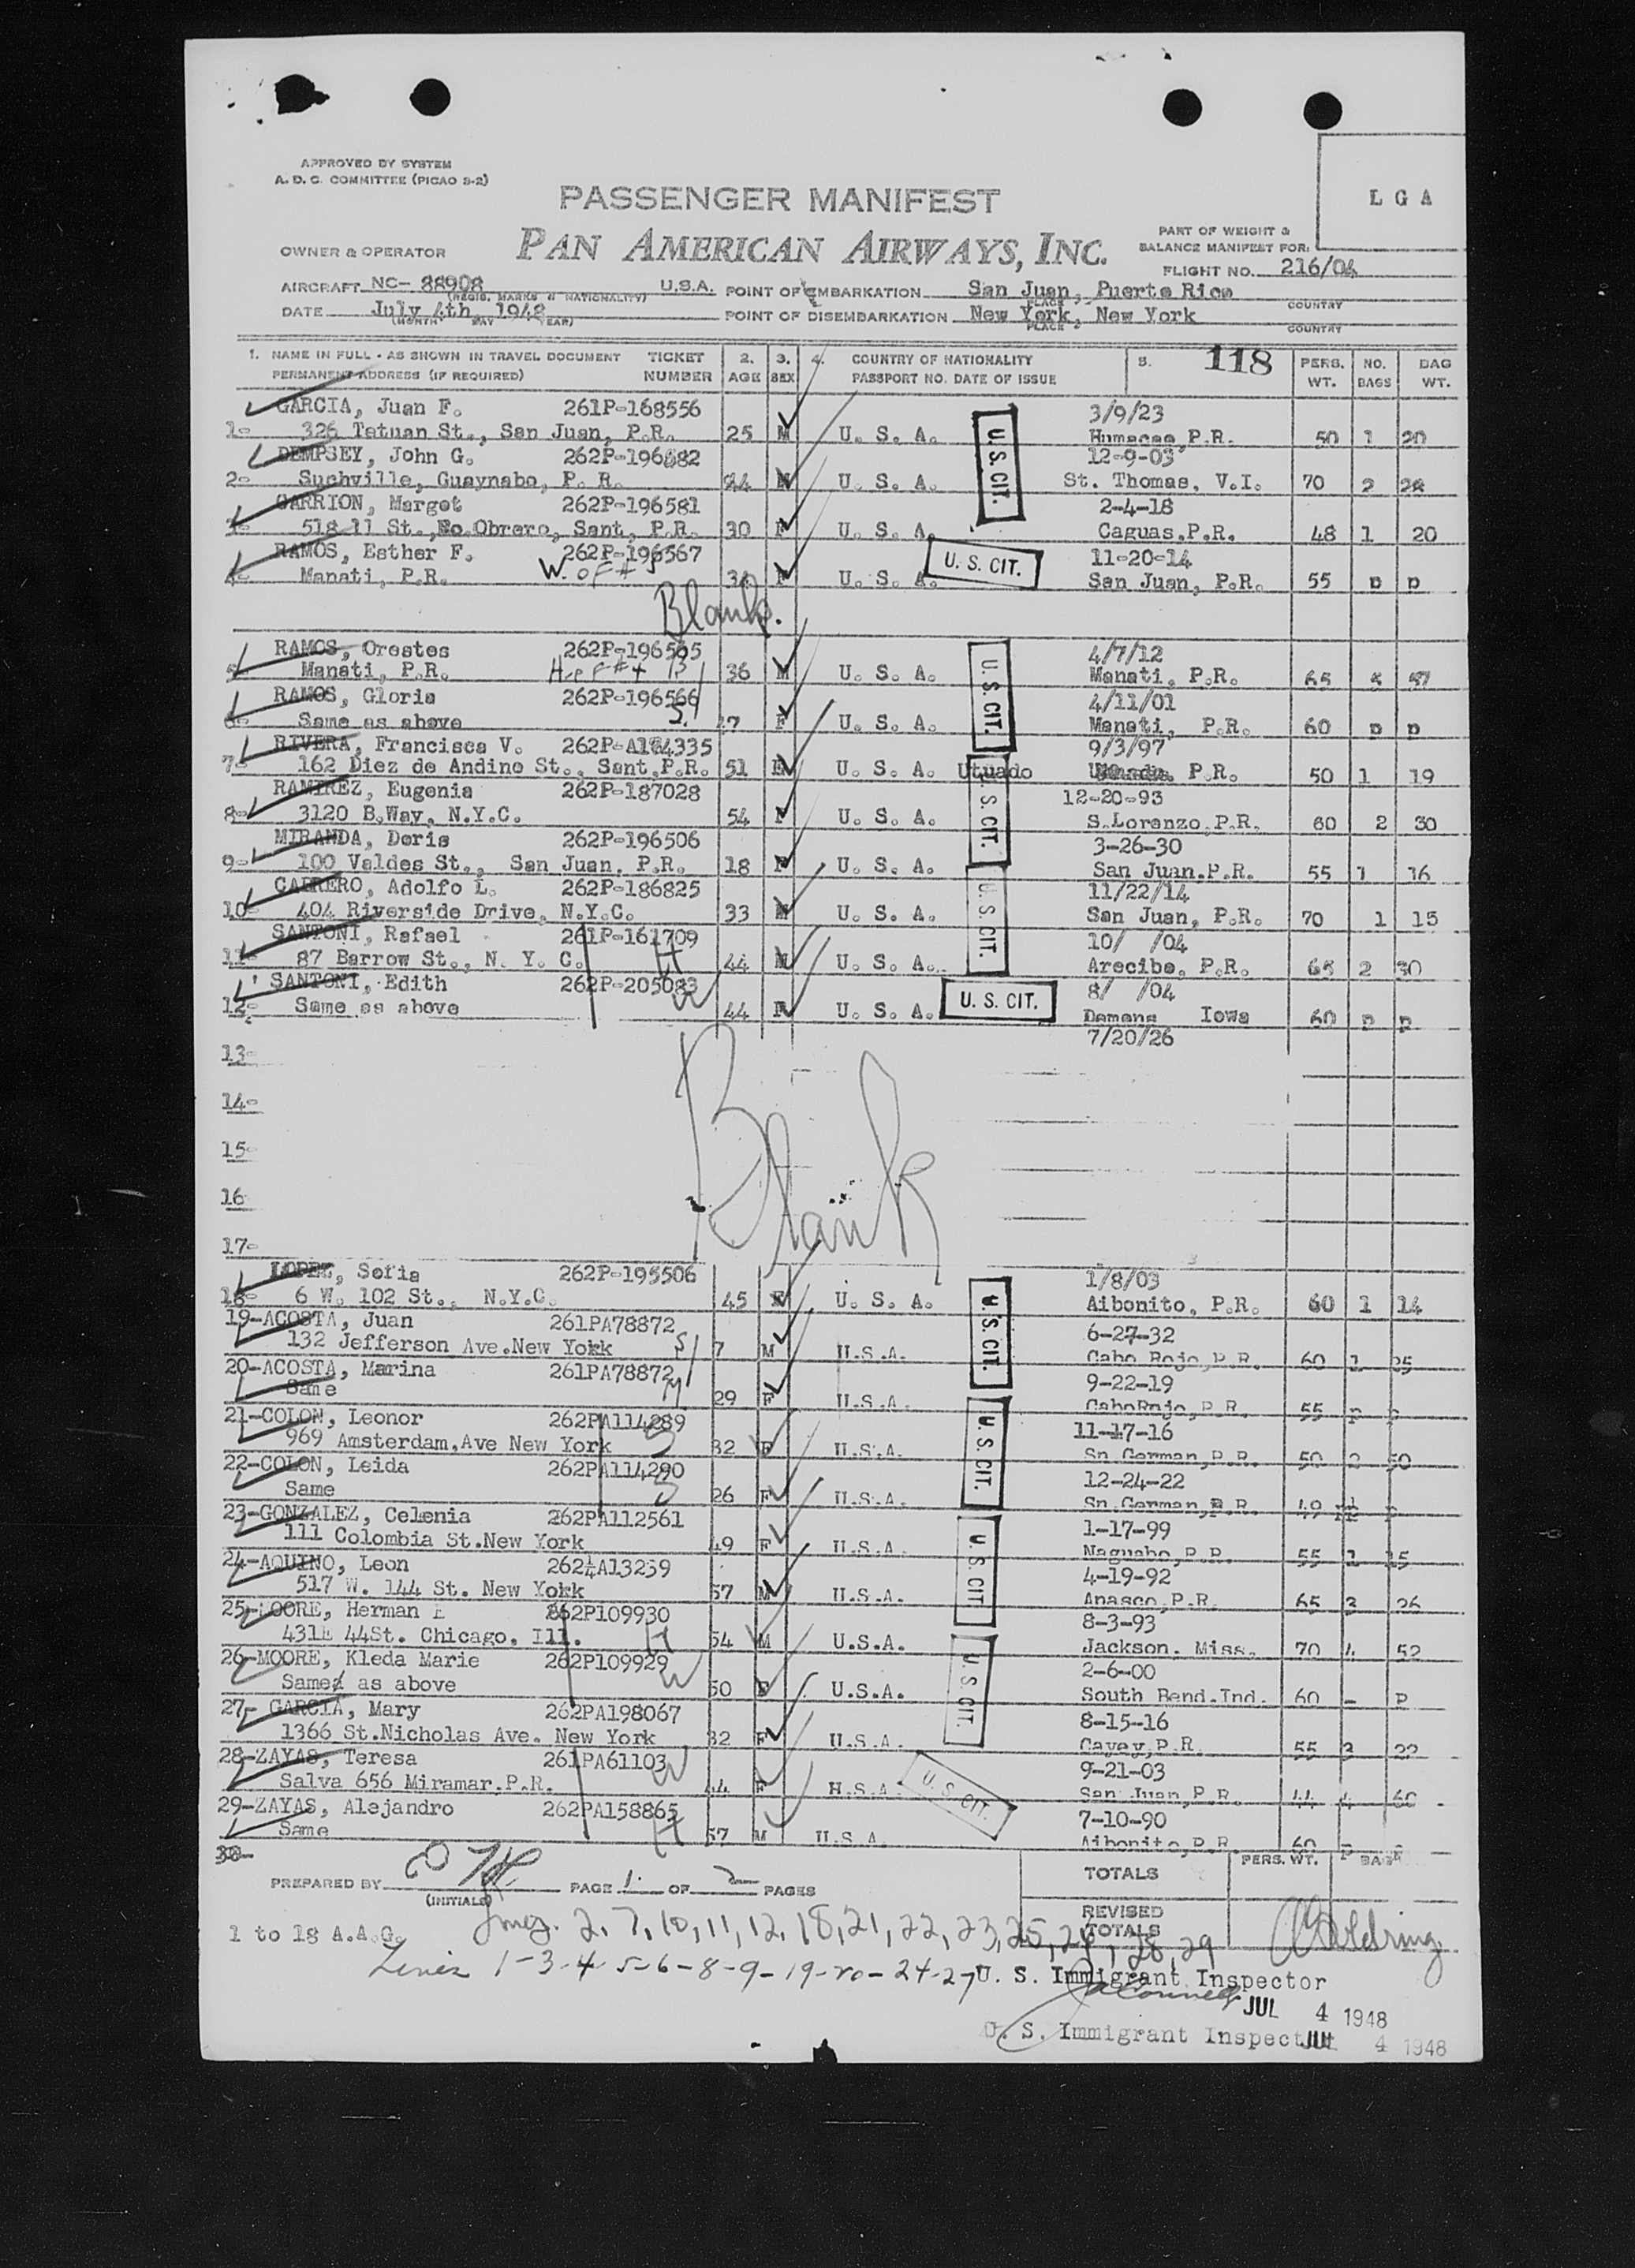 APPROVED BY SYSTEM
A. D. C. COMMITTEE (PICAO S-2)
L G A
PASSENGER MANIFEST
PAN AMERICAN AIRWAYS, INC.
OWNER & OPERATOR
PART OF WEIGHT &
BALANCE MANIFEST FOR:
FLIGHT NO. 216/04
AIRCRAFT NC- 88908 U.S.A. POINT OF EMBARKATION San Juan, Puerto Rico
(REGIS. MARKS & NATIONALITY) PLACE COUNTRY
DATE July 4th, 1948 POINT OF DISEMBARKATION New York, New York
(MONTH DAY YEAR) PLACE COUNTRY
1. NAME IN FULL - AS SHOWN IN TRAVEL DOCUMENT TICKET 2. 3. 4. COUNTRY OF NATIONALITY 5. 118 PERS. NO. BAG
PERMANENT ADDRESS (IF REQUIRED) NUMBER AGE SEX PASSPORT NO. DATE OF ISSUE WT. BAGS WT.
GARCIA, Juan F. 261P-168556 3/9/23
1- 326 Tetuan St., San Juan, P.R. 25 M U. S. A. U.S. CIT. Humacao, P.R. 50 1 20
DEMPSEY, John G. 262P-196682 12-9-03
2- Suchville, Guaynabo, P. R. 44 M U. S. A. St. Thomas, V.I. 70 2 28
CARRION, Margot 262P-196581 2-4-18
3- 518 11 St., Bo.Obrero, Sant, P.R. 30 F U. S. A. Caguas,P.R. 48 1 20
RAMOS, Esther F. 262P-196567 11-20-14
4- Manati, P.R. W. of #5 F U. S. A. U. S. CIT. San Juan, P.R. 55 p p
Blank.
RAMOS, Orestes 4/7/12
5- Manati, P.R. H. of #4 36 M U. S. A. U.S. CIT. Manati, P.R. 65 5 57
RAMOS, Gloria 262P-196566 4/11/01
6- Same as above S. 47 F U. S. A. Manati, P.R. 60 p p
RIVERA, Francisca V. 9/3/97
7- 162 Diez de Andino St., Sant,P.R. 51 F U. S. A. Utuado P.R. 50 1 19
RAMIREZ, Eugenia 262P-187028 12-20-93
8- 3120 B.Way, N.Y.C. 54 F U. S. A. U.S. CIT. S.Lorenzo,P.R. 60 2 30
MIRANDA, Doris 262P-196506 3-26-30
9- 100 Valdes St., San Juan, P.R. 18 F U. S. A. San Juan,P.R. 55 1 16
CABRERO, Adolfo L. 262P-186825 11/22/14
10- 404 Riverside Drive, N.Y.C. 33 M U. S. A. U.S. CIT. San Juan, P.R. 70 1 15
SANTONI, Rafael 261P-161709 10/ /04
11- 87 Barrow St., N. Y. C. H 44 M U. S. A. Arecibo, P.R. 65 2 30
SANTONI, Edith 262P-205083 8/ /04
12- Same as above W 44 F U. S. A. U. S. CIT. Demens Iowa 60 p p
7/20/26
13-
14-
15-
16
17-
Blank
LOPEZ, Sofia 262P-195506 1/8/03
18- 6 W. 102 St., N.Y.C. 45 F U. S. A. U.S. CIT. Aibonito, P.R. 60 1 14
19-ACOSTA, Juan 261PA78872 6-27-32
132 Jefferson Ave.New York S 7 M U.S.A. Cabo Rojo,P.R. 60 1 25
20-ACOSTA, Marina 261PA78872 9-22-19
Same M 29 F U.S.A. CaboRojo,P.R. 55 p
21-COLON, Leonor 262PA114289 11-17-16
969 Amsterdam,Ave New York S 32 F U.S.A. U.S. CIT. Sn German,P.R. 50 2 50
22-COLON, Leida 262PA114290 12-24-22
Same S 26 F U.S.A. Sn.German,P.R. 49
23-GONZALEZ, Celenia 262PA112561 1-17-99
111 Colombia St.New York 49 F U.S.A. U.S. CIT Naguabo,P.R. 55 1 15
24-AQUINO, Leon 4-19-92
517 W. 144 St. New York 57 M U.S.A. Anasco,P.R. 65 3 26
25-MOORE, Herman E 262P109930 8-3-93
431E 44St. Chicago, Ill. H 54 M U.S.A. Jackson. Miss. 70 4 52
26-MOORE, Kleda Marie 262P109929 2-6-00
Same as above W 50 F U.S.A. U.S. CIT. South Bend.Ind. 60 - P
27- GARCIA, Mary 262PA198067 8-15-16
1366 St.Nicholas Ave. New York 32 F U.S.A. Cayey,P.R. 55 3 22
28-ZAYAS, Teresa 261PA61103 9-21-03
Salva 656 Miramar.P.R. W 44 F U.S.A. U. S. CIT. San Juan,P.R. 44 4 60
29-ZAYAS, Alejandro 262PA158865 7-10-90
Same H 57 M U.S.A. Aibonito,P.R. 60 p
30-
PREPARED BY (INITIALS) PAGE 1. OF 2 PAGES TOTALS PERS. WT. BAGS
REVISED
TOTALS
1 to 18 A.A.G. 2, 7, 10, 11, 12, 18, 21, 22, 23, 25, 28, 29
Lines 1-3-4-5-6-8-9-19-20-24-27 U. S. Immigrant Inspector
JUL 4 1948
U. S. Immigrant Inspector JUL 4 1948